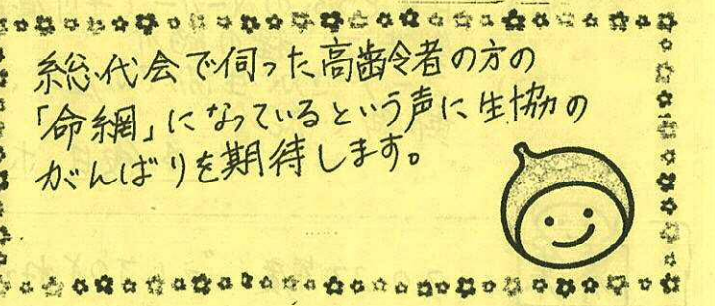 総代会で伺った高齢者の方の
「命綱」になっているという声に生協の
がんばりを期待します。